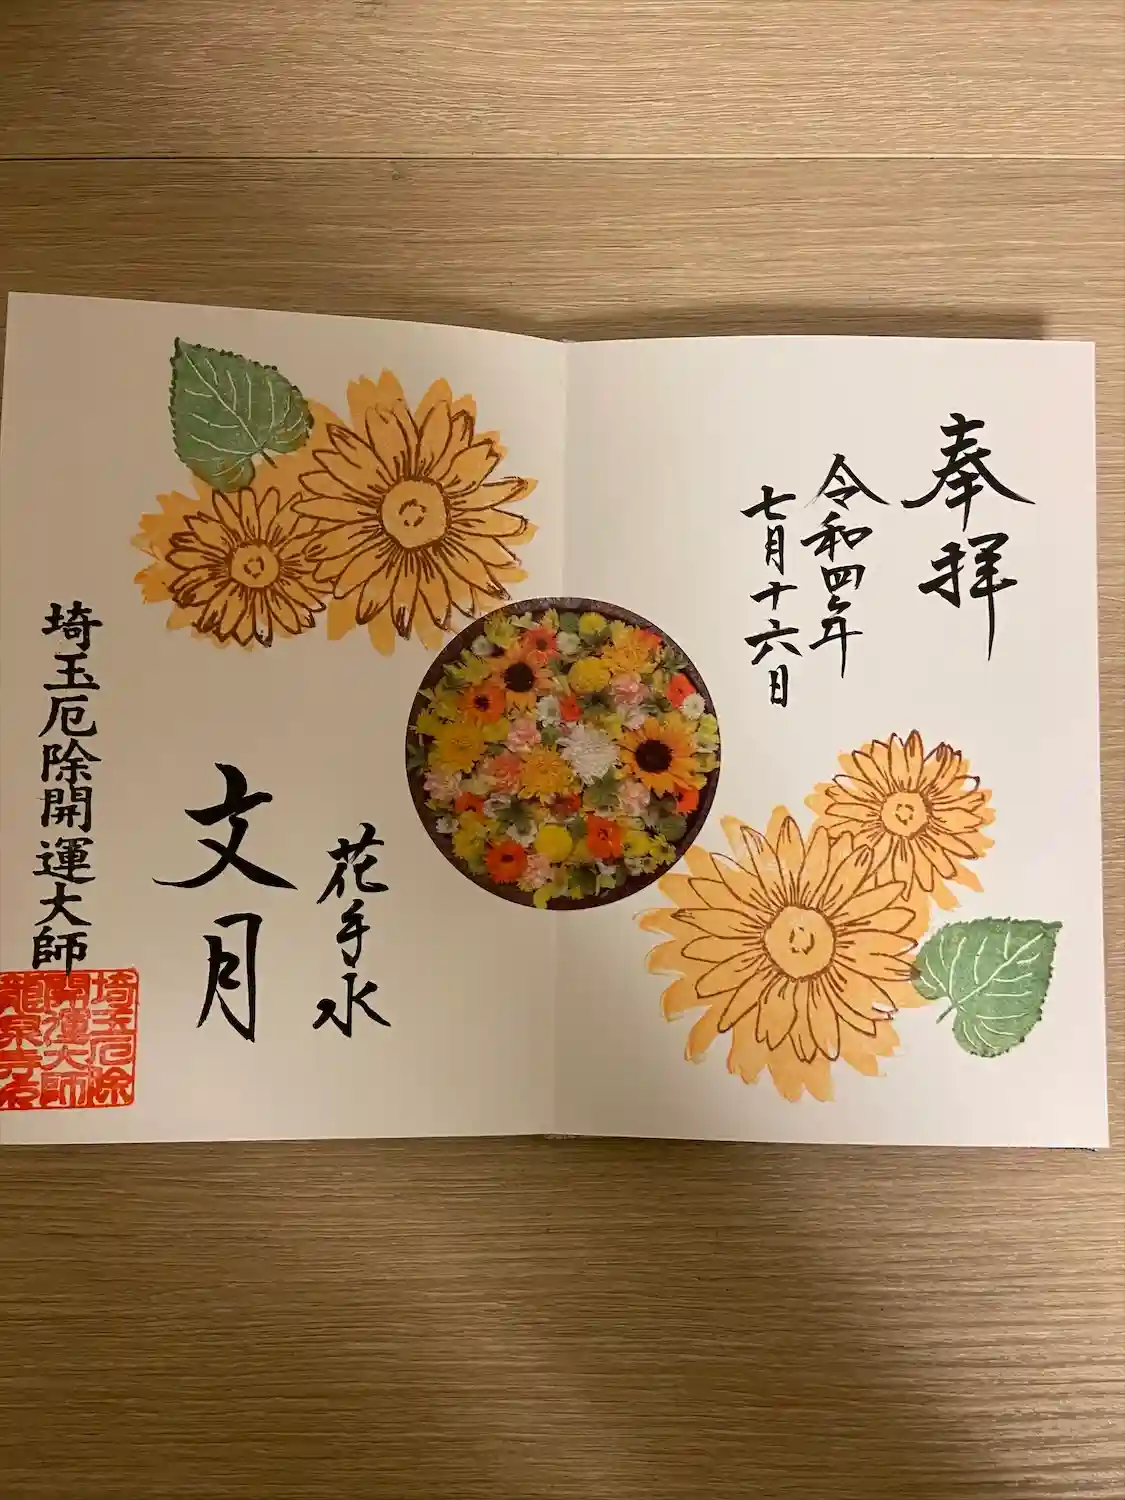 奉拝
令和四年
七月十六日
花手水
文月
埼玉厄除開運大師
埼玉厄除
開運大師
龍泉寺